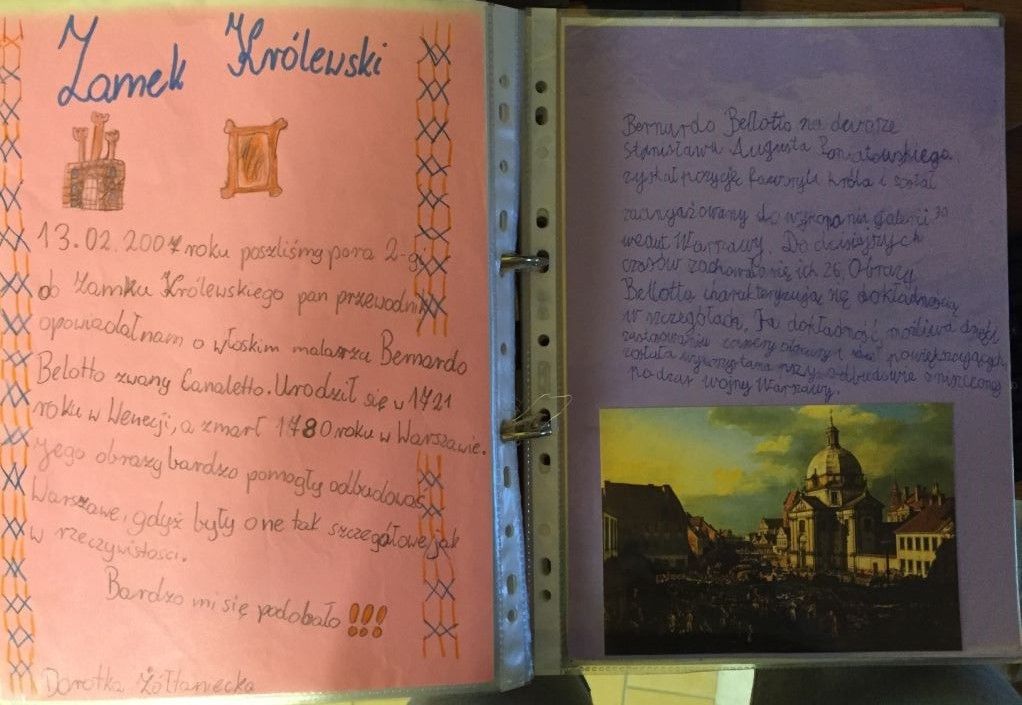 Zamek Królewski
13.02.2007 roku poszliśmy para 2-gi
do Zamku Królewskiego pan przewodnik
opowiadał nam o włoskim malarzu Bernardo
Belotto zwany Canaletto. Urodził się w 1721
roku w Wenecji, a zmarł 1780 roku w Warszawie.
Jego obrazy bardzo pomogły odbudować
Warszawe, gdyż były one tak szczegółowe jak
w rzeczywistości.
Bardzo mi się podobało !!!
Dorotka Żółtaniecka
Bernardo Bellotto na dworze
Stanisława Augusta Poniatowskiego
zyskał pozycję faworyta króla i został
zaangażowany do wykonania galerii 30
wedut Warszawy. Do dzisiejszych
czasów zachowało się ich 26. Obrazy
Bellotta charakteryzują się dokładnością
w szczegółach. Ta dokładność, możliwa dzięki
zastosowaniu camery obscury i powiększających,
została wykorzystana przy odbudowie zniszczonej
podczas wojny Warszawy.